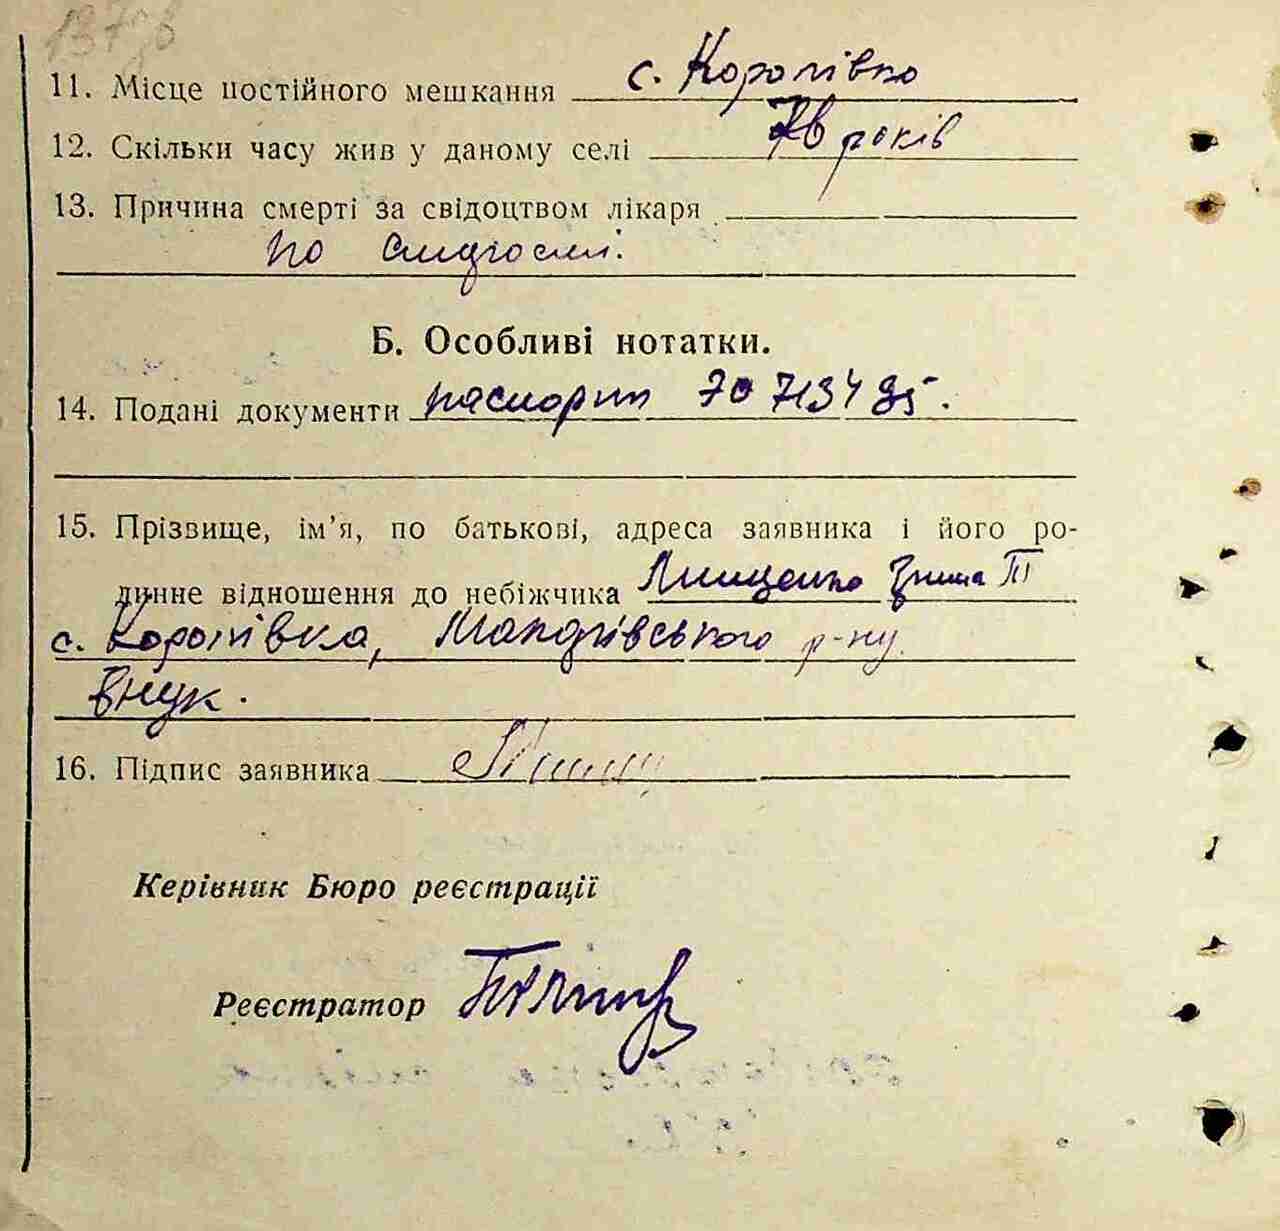 137зв
11. Місце постійного мешкання с. Королівка
12. Скільки часу жив у даному селі років
13. Причина смерті за свідоцтвом лікаря
по
Б. Особливі нотатки.
14. Подані документи паспорт
15. Прізвище, ім'я, по батькові, адреса заявника і його ро-
динне відношення до небіжчика Лищенко П
с. Королівка, Макарівського р-ну
Внук.
16. Підпис заявника
Керівник Бюро реєстрації
Реєстратор